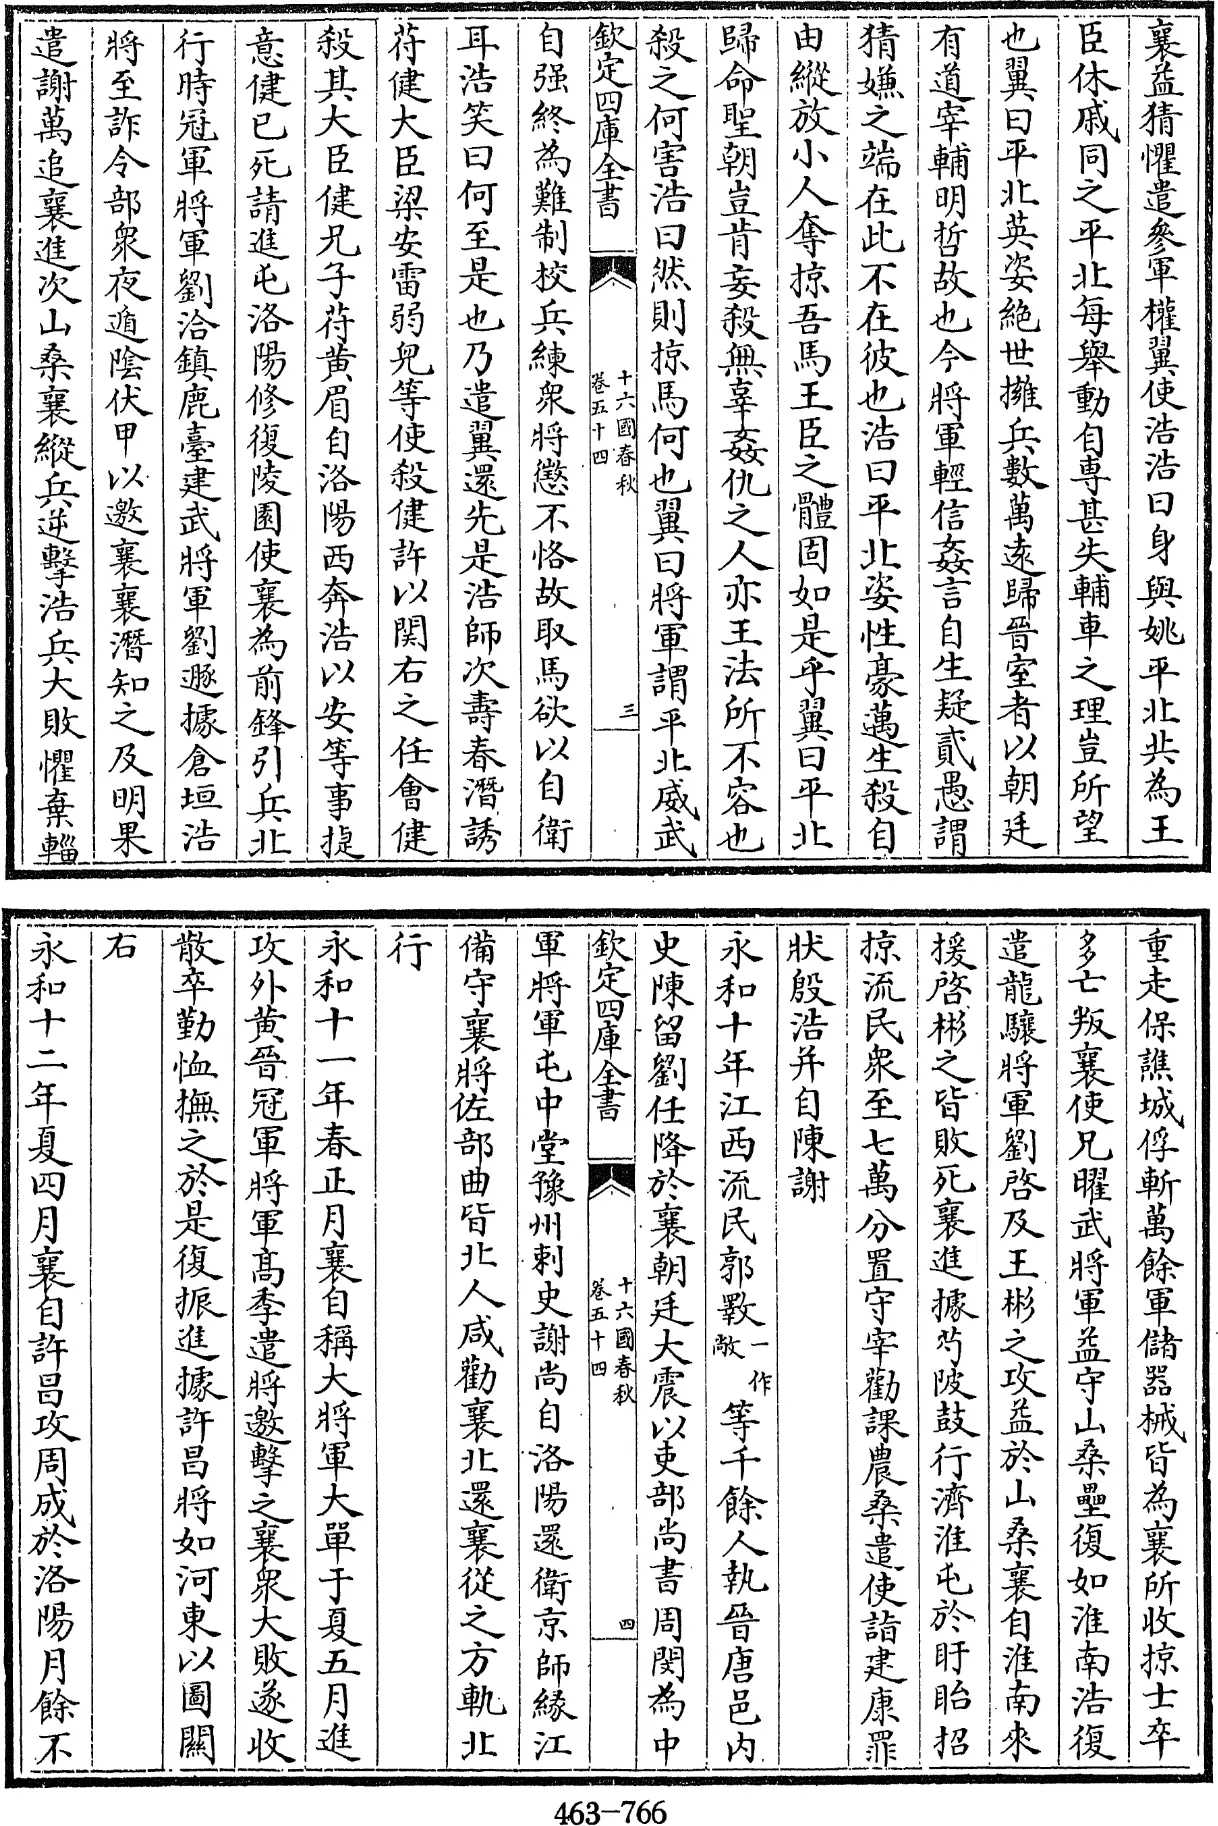 襄益猜懼遣參軍權翼使浩浩曰身與姚平北共為王
臣休戚同之平北每舉動自専甚失輔車之理豈所望
也翼曰平北英姿絶世擁兵數萬逺歸晉室者以朝廷
有道宰輔明哲故也今將軍輕信姦言自生疑貳愚謂
猜嫌之端在此不在彼也浩曰平北姿性豪邁生殺自
由縱放小人奪掠吾馬王臣之體固如是乎翼曰平北
歸命聖朝豈肯妄殺無辜姦仇之人亦王法所不容也
殺之何害浩曰然則掠馬何也翼曰將軍謂平北威武
欽定四庫全書
十六國春秋
卷五十四
三
自强終為難制校兵練衆將懲不恪故取馬欲以自衛
耳浩笑曰何至是也乃遣翼還先是浩師次壽春潛誘
苻健大臣梁安雷弱兒等使殺健許以関右之任會健
殺其大臣健兄子苻黄眉自洛陽西奔浩以安等事捷
意健已死請進屯洛陽修復陵園使襄為前鋒引兵北
行時冠軍將軍劉洽鎮鹿臺建武將軍劉遯據倉垣浩
將至詐令部衆夜遁陰伏甲以邀襄襄潛知之及明果
遣謝萬追襄進次山桑襄縱兵逆擊浩兵大敗懼棄輜
重走保譙城俘斬萬餘軍儲器械皆為襄所收掠士卒
多亡叛襄使兄曜武將軍益守山桑壘復如淮南浩復
遣龍驤將軍劉啓及王彬之攻益於山桑襄自淮南來
援啓彬之皆敗死襄進據芍陂鼓行濟淮屯於盱眙招
掠流民衆至七萬分置守宰勸課農桑遣使詣建康罪
狀殷浩并自陳謝
永和十年江西流民郭斁一作敞等千餘人執晉唐邑内
史陳留劉任降於襄朝廷大震以吏部尚書周閔為中
欽定四庫全書
十六國春秋
卷五十四
四
軍將軍屯中堂豫州刺史謝尚自洛陽還衛京師緣江
備守襄將佐部曲皆北人咸勸襄北還襄從之方軌北
行
永和十一年春正月襄自稱大將軍大單于夏五月進
攻外黄晉冠軍將軍髙季遣將邀擊之襄衆大敗遂收
散卒勤恤撫之於是復振進據許昌將如河東以圖關
右
永和十二年夏四月襄自許昌攻周成於洛陽月餘不
463-766